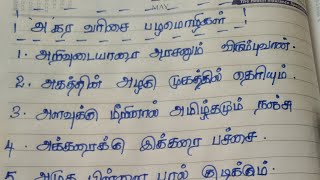 MAY
அகர வரிசை பழமொழிகள்
1. அறிவுடையாரை அரசனும் விரும்புவான்.
2. அகத்தின் அழகு முகத்தில் தெரியும்.
3. அளவுக்கு மீறினால் அமிழ்தமும் நஞ்சு
4. அக்கரைக்கு இக்கரை பச்சை.
5. அழுத பிள்ளை பால் குடிக்கும்.